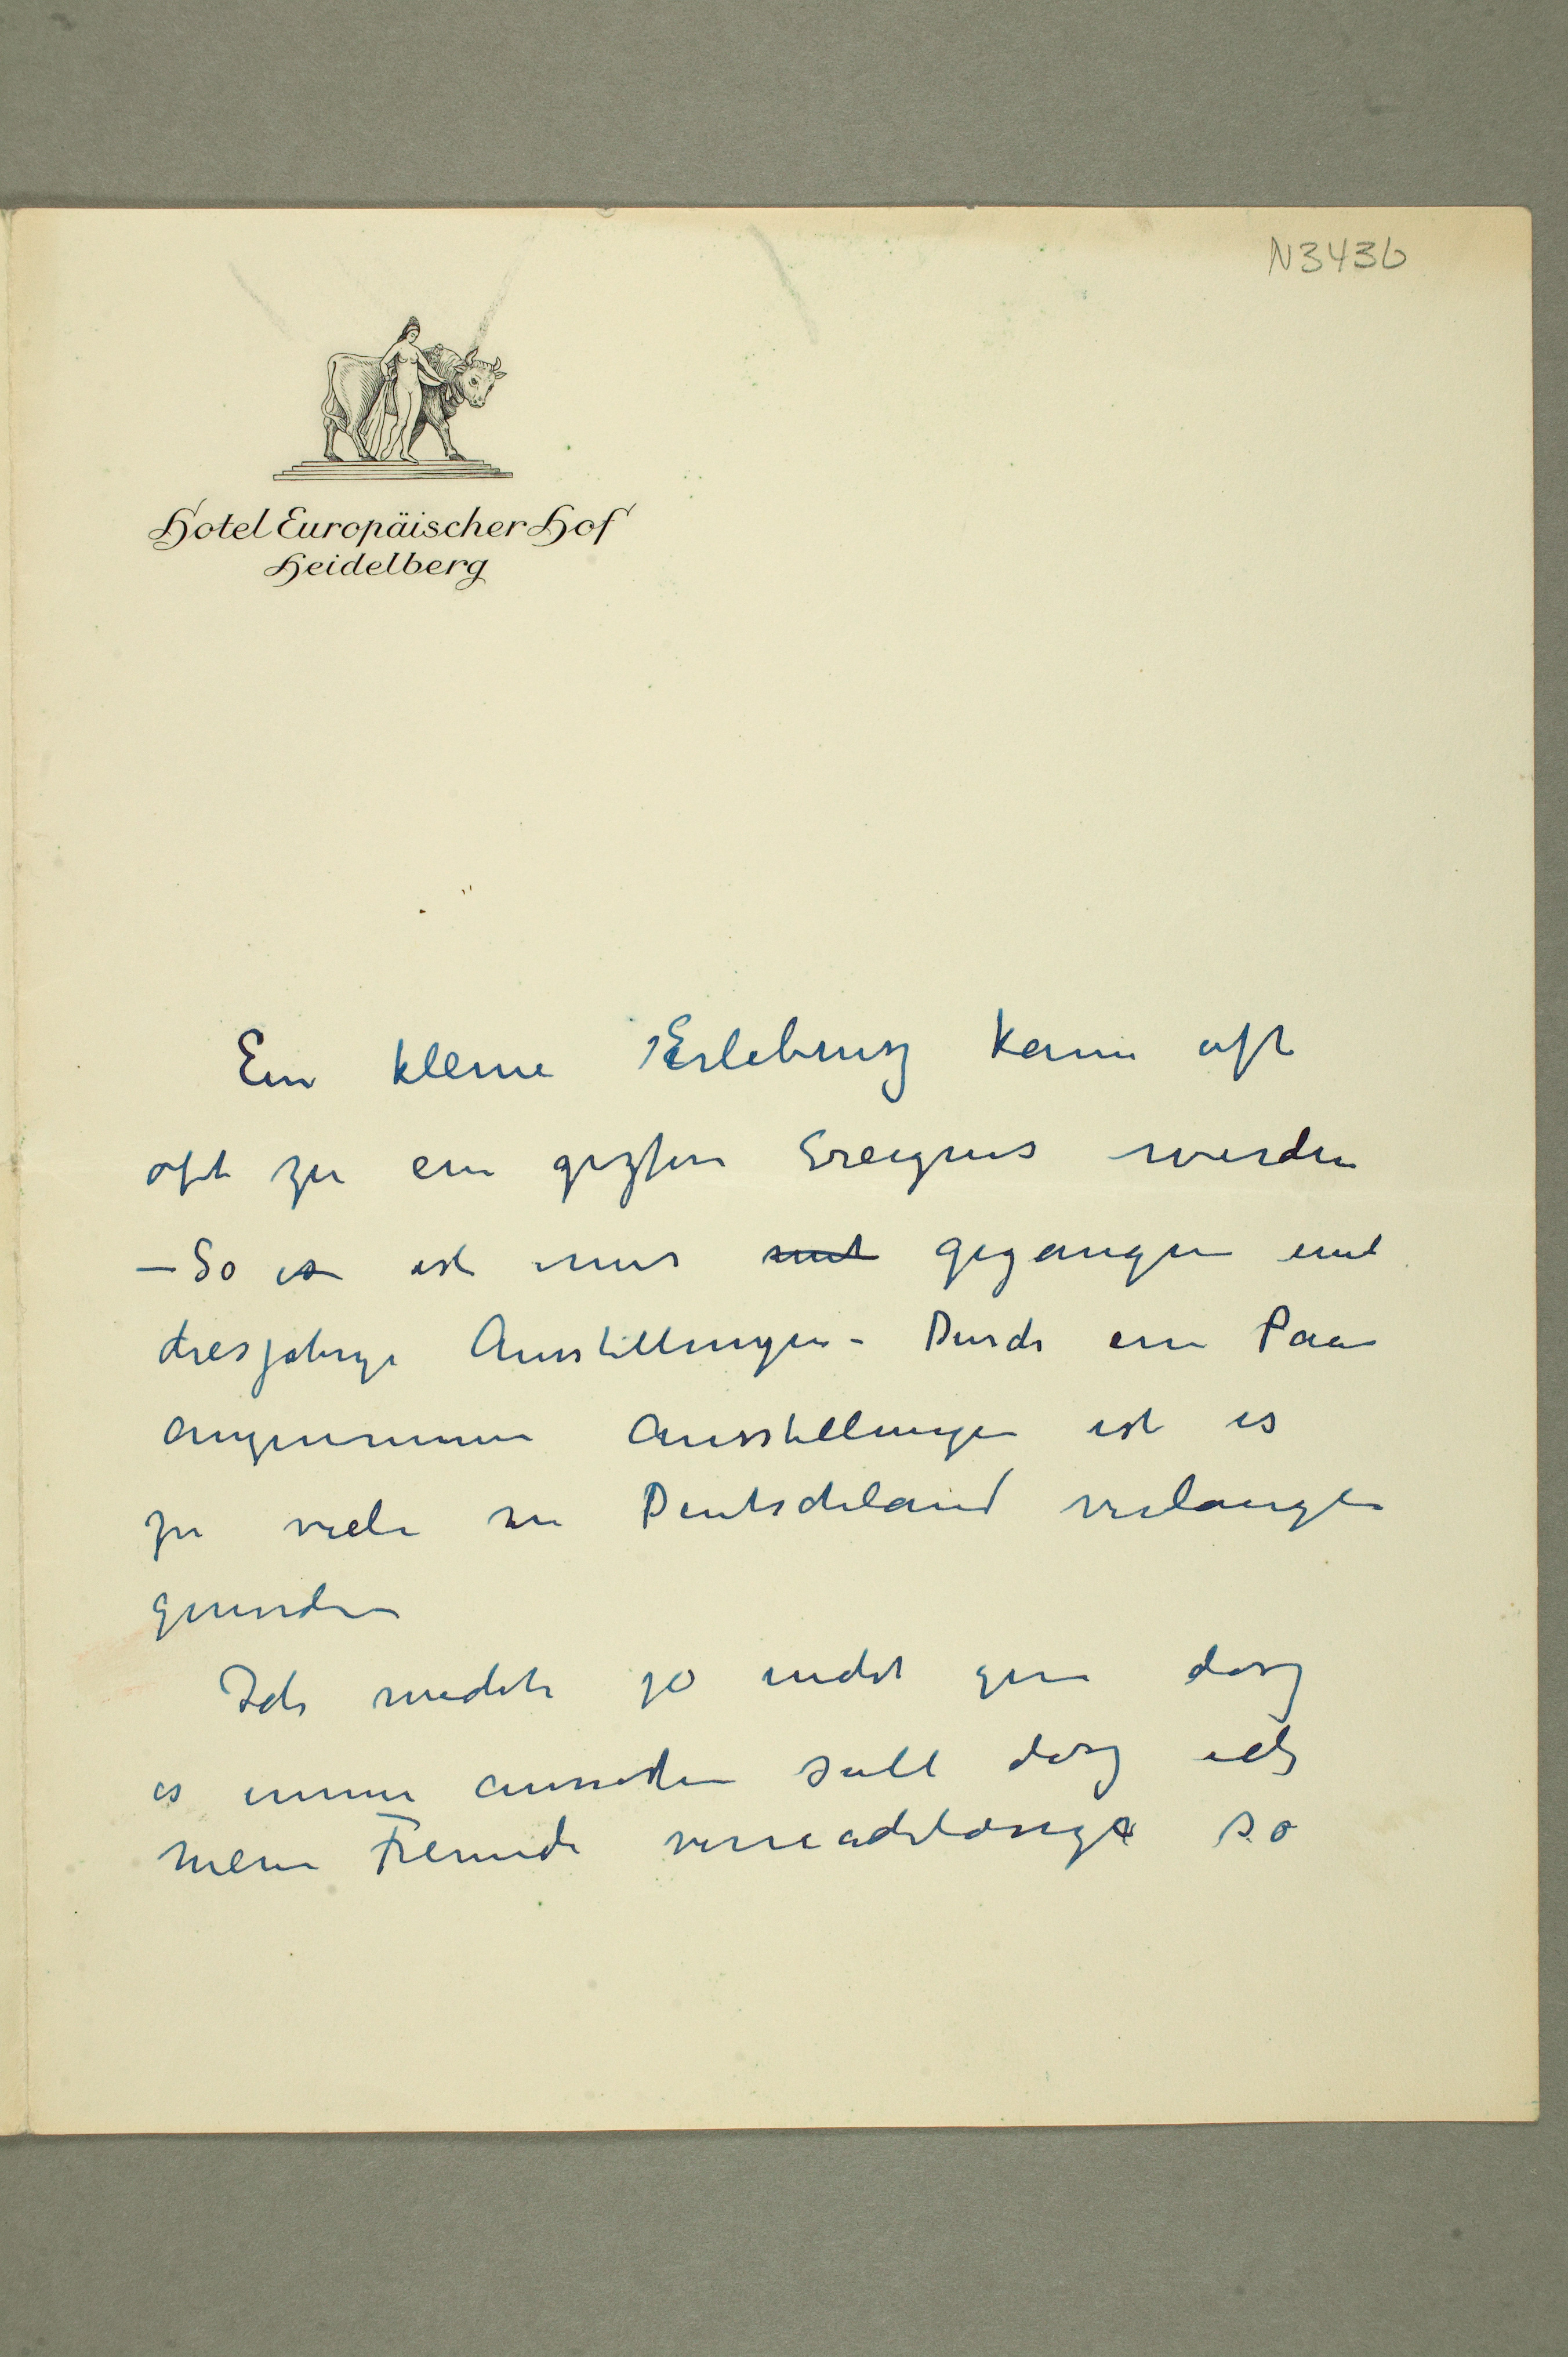 N3436
Hotel Europäischer Hof
Heidelberg
Ein kleine Erlebnisz kann oft
oft zu ein Ereignis werden
– So es ist mir mit gegangen mit
diesjahrige Ausstellungen – Durch ein Paar
angenommen Ausstellungen ist es
zu viele in Deutschland verlangen
geworden
Ich möchte jo nicht gern dasz
es immer aussehen soll dasz ich
meine Freunde vernachlässige so